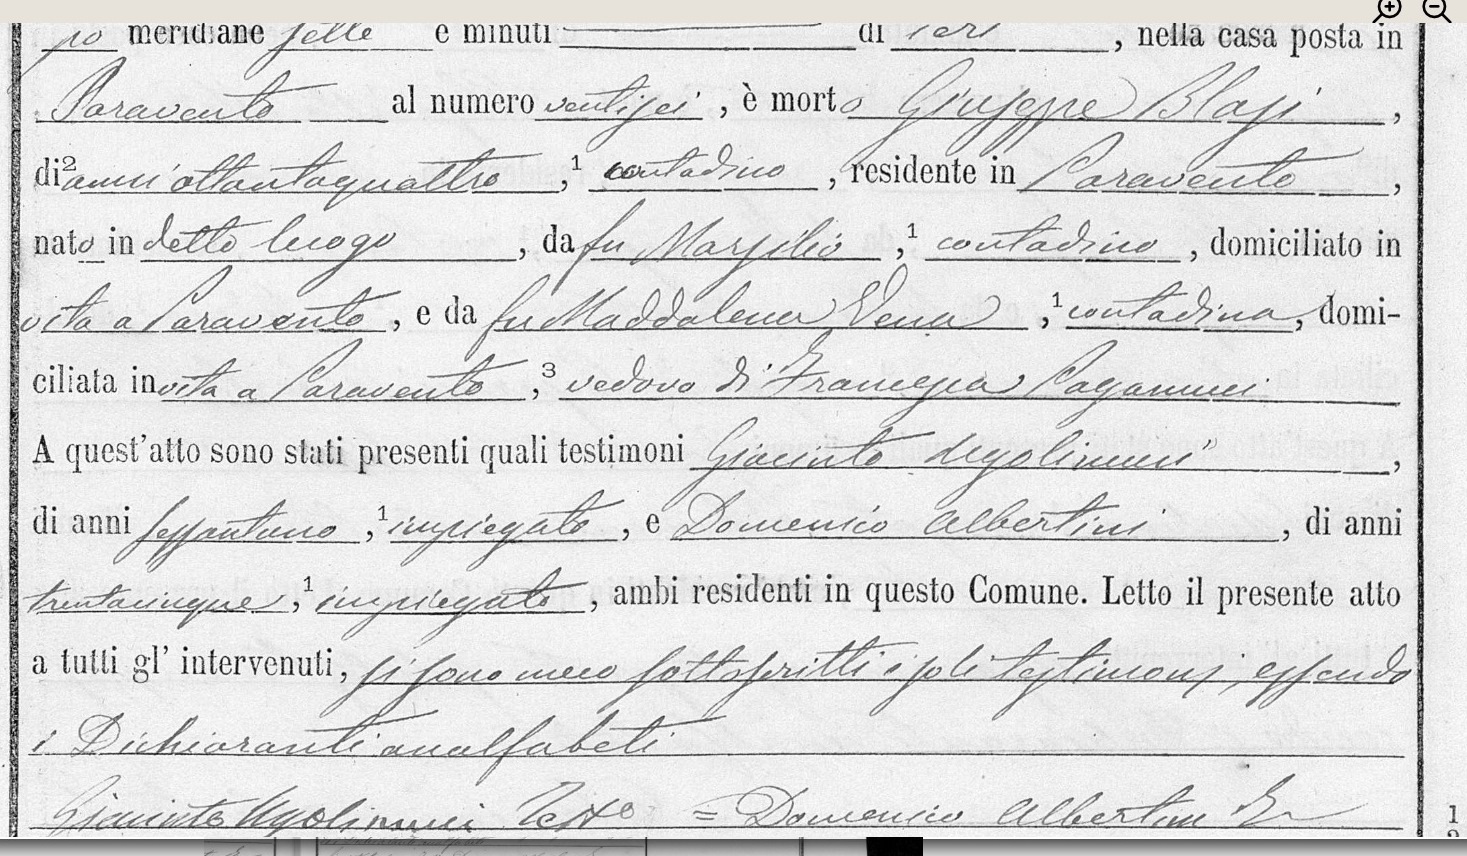 po meridiane sette e minuti di ieri, nella casa posta in
Paravento al numero ventisei, è morto Giuseppe Blasi,
di² anni ottantaquattro,¹ contadino, residente in Paravento,
nato in detto luogo, da fu Marsilio,¹ contadino, domiciliato in
vita a Paravento, e da fu Maddalena Vena,¹ contadina, domi-
ciliata in vita a Paravento,³ vedovo di Francesca Paganucci
A quest'atto sono stati presenti quali testimoni Giacinto Ugolinucci,
di anni sessantuno,¹ impiegato, e Domenico Albertini, di anni
trentacinque,¹ impiegato, ambi residenti in questo Comune. Letto il presente atto
a tutti gl' intervenuti, si sono meco sottoscritti i soli testimoni, essendo
i Dichiaranti analfabeti
Giacinto Ugolinucci Testo = Domenico Albertini
1